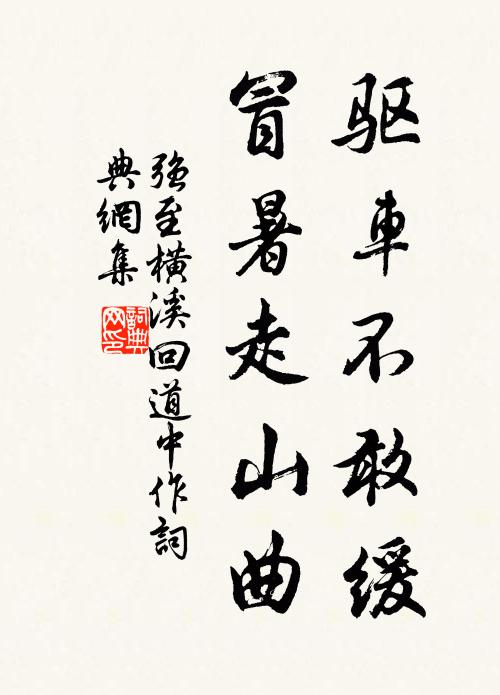 驱車不敢緩
冒暑走山曲
强至橫溪回道中作詞
典網集
詞典
网印